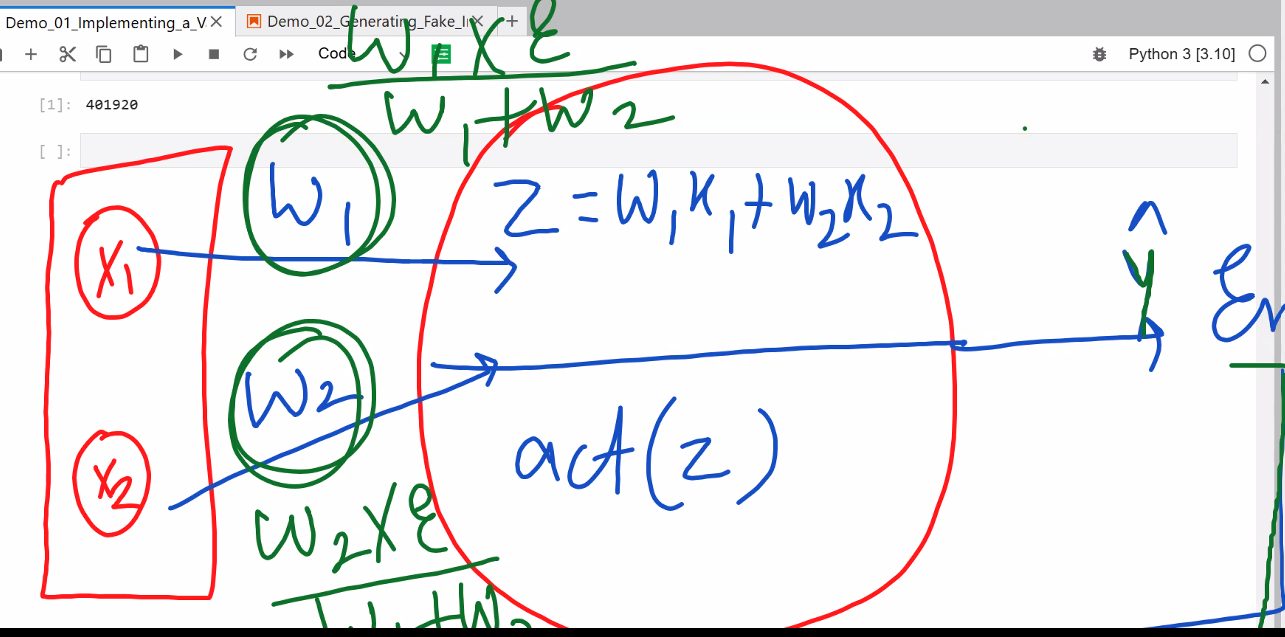 Demo_01_Implementing_a_V
Demo_02_Generating_Fake_I
Code
Python 3 [3.10]
W1 x E
W1 + W2
[1]: 401920
[ ]:
W1
Z = W1X1 + W2X2
X1
ŷ
W2
act(z)
X2
W2 x E
W1 + W2